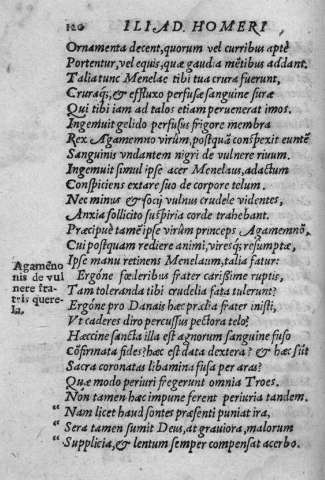 120 ILIAD. HOMERI
Ornamenta decent, quorum vel curribus aptè
Portentur, vel equis, quæ gaudia mētibus addant.
Talia tunc Menelae tibi tua crura fuerunt,
Cruraq́;, & effluxo perfusæ sanguine suræ
Qui tibi iam ad talos etiam peruenerat imos.
Ingemuit gelido perfusus frigore membra
Rex Agamemno virûm, postquā conspexit euntē
Sanguinis vndantem nigri de vulnere riuum.
Ingemuit simul ipse acer Menelaus, adactum
Conspiciens extare suo de corpore telum.
Nec minus & socij vulnus crudele videntes,
Anxia sollicito suspiria corde trahebant.
Præcipuè tamē ipse virûm princeps Agamemnō,
Cui postquam rediere animi, viresq́; resumptæ,
Ipse manu retinens Menelaum, talia fatur:
Agamēno
nis de vul
nere fra-
tris quere-
la.
Ergóne fœderibus frater carissime ruptis,
Tam toleranda tibi crudelia fata tulerunt?
Ergóne pro Danais hæc prælia frater inisti,
Vt caderes diro percussus pectora telo?
Hæccine sancta illa est agnorum sanguine fuso
Cōfirmata fides? hæc est data dextera? & hæc sūt
Sacra coronatas libamina fusa per aras?
Quæ modo periuri fregerunt omnia Troes.
Non tamen hæc impune ferent periuria tandem.
“ Nam licet haud sontes præsenti puniat ira,
“ Sera tamen sumit Deus, at grauiora, malorum
“ Supplicia, & lentum semper compensat acerbo.